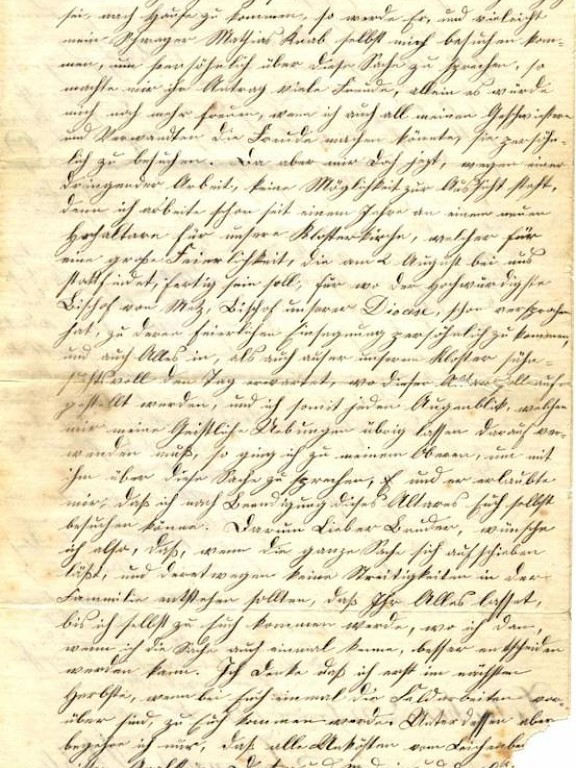 sei, nach Hause zu kommen, so werde Er, und vieleicht
mein Schwager Mathias Knab selbst mich besuchen kom-
men, um persöhnlich über diese Sache zu sprechen, so
machte mir ihr Antrag viele Freude, allein es würde
mich noch mehr freuen, wenn ich auch all meinen Geschwistern
und Verwandten die Freude machen könnte, sie persöhn-
lich zu besuchen. Da aber mir doch jezt, wegen einer
dringender Arbeit, keine Möglichkeit zur Aussicht steht,
denn ich arbeite schon seit einem Jahre an einem neuen
Hochaltare für unsere Klosterkirche, welcher für
eine große Feierlichkeit, die am 2 August bei uns
stattfindet, fertig sein soll, für wo der Hochwürdigste
Bischof von Metz, Bischof unserer Diocese, schon versprochen
hat, zu deren feierlichen Einsegnung persöhnlich zu kommen,
und auch Alles in, als auch außer unserem Kloster sehn-
suchtsvoll den Tag erwartet, wo dieser Altar soll auf-
gestellt werden, und ich somit jeden Augenblik, welchen
mir meine Geistliche Uebungen übrig lassen darauf ver-
wenden muß, so ging ich zu meinem Oberen, um mit
ihm über diese Sache zu sprechen, und er erlaubte
mir, daß ich nach Beendigung dieses Altares Euch selbst
besuchen könne. Darum Lieber Bruder, wünsche
ich also, daß, wenn die ganze Sache sich aufschieben
läßt, und deretwegen keine Streitigkeiten in der
Fammilie entstehen sollten, daß Ihr Alles lasset,
bis ich selbst zu Euch kommen werde, wo ich dan,
wenn ich die Sache auch einmal kenne, besser entscheiden
werden kann. Ich denke daß ich erst im nächsten
Herbste, wenn bei Euch einmal die Feldarbeiten vor-
über sind, zu Euch kommen werde. Unterdessen aber
begehre ich nur, daß alle Unkösten vom